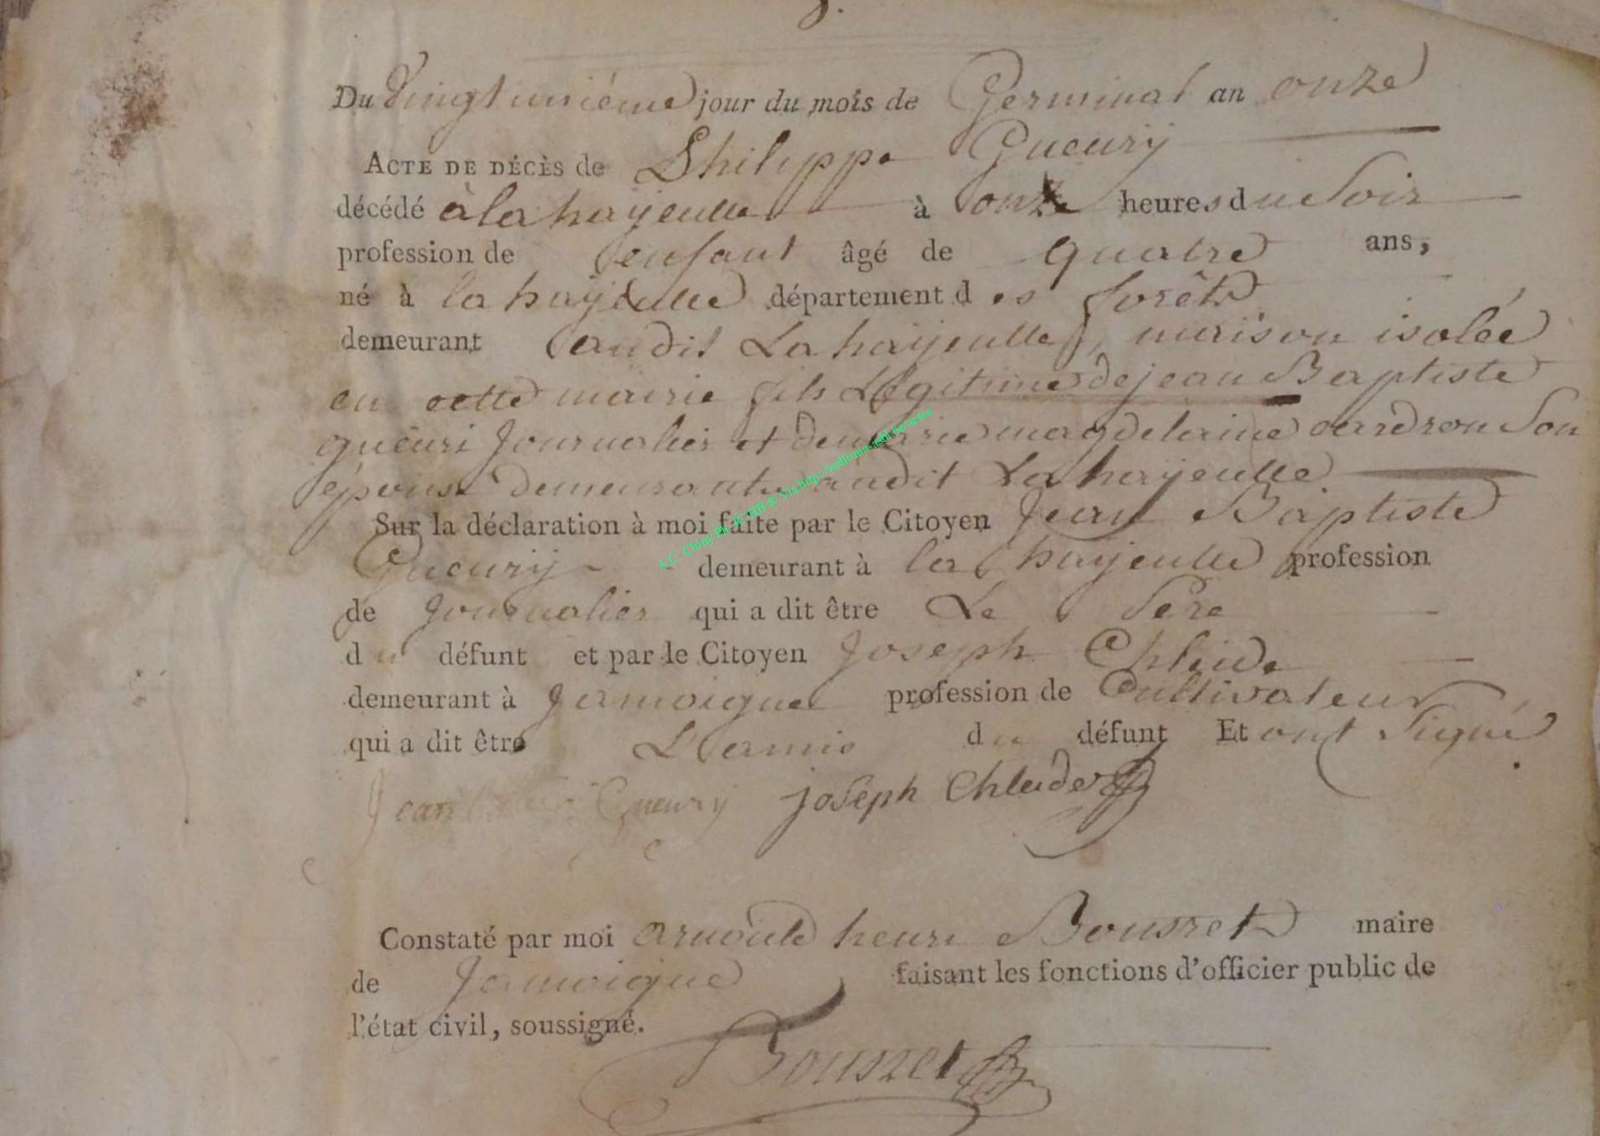 8.
Du vingt unième jour du mois de Germinal an onze
ACTE DE DÉCÈS de Philippe Gueury
décédé à la hayeulle à onze heures du Soir
profession de enfant âgé de quatre ans,
né à la hayeulle département des forêts
demeurant audit La hayeulle, maison isolée
en cette mairie fils Légitime de jean Baptiste
gueuri Journalier et de marie magdelaine Son
épouse demeurante audit La hayeulle
Sur la déclaration à moi faite par le Citoyen Jean Baptiste
Gueury demeurant à la hayeulle profession
de Journalier qui a dit être Le Père
du défunt et par le Citoyen Joseph Chleide
demeurant à Jamoigne profession de Cultivateur
qui a dit être L'amis du défunt Et ont Signé
Jean Gueury joseph Chleide
Constaté par moi arnould henri Bousret maire
de Jamoigne faisant les fonctions d'officier public de
l'état civil, soussigné.
Bousret